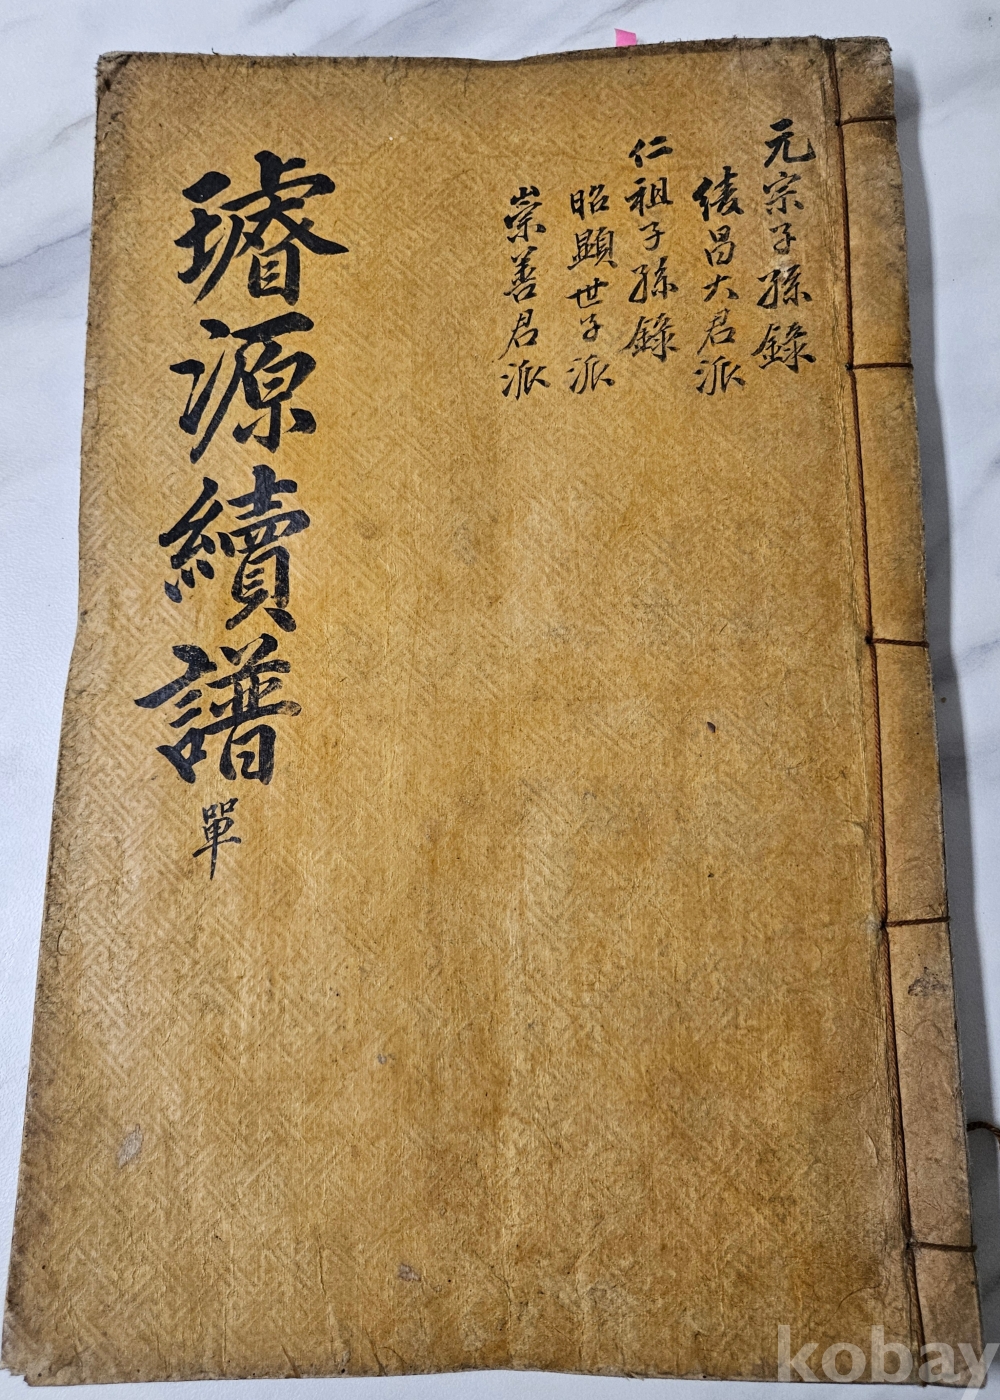 元宗子孫錄
綾昌大君派
仁祖子孫錄
昭顯世子派
崇善君派
璿源續譜
單
kobay